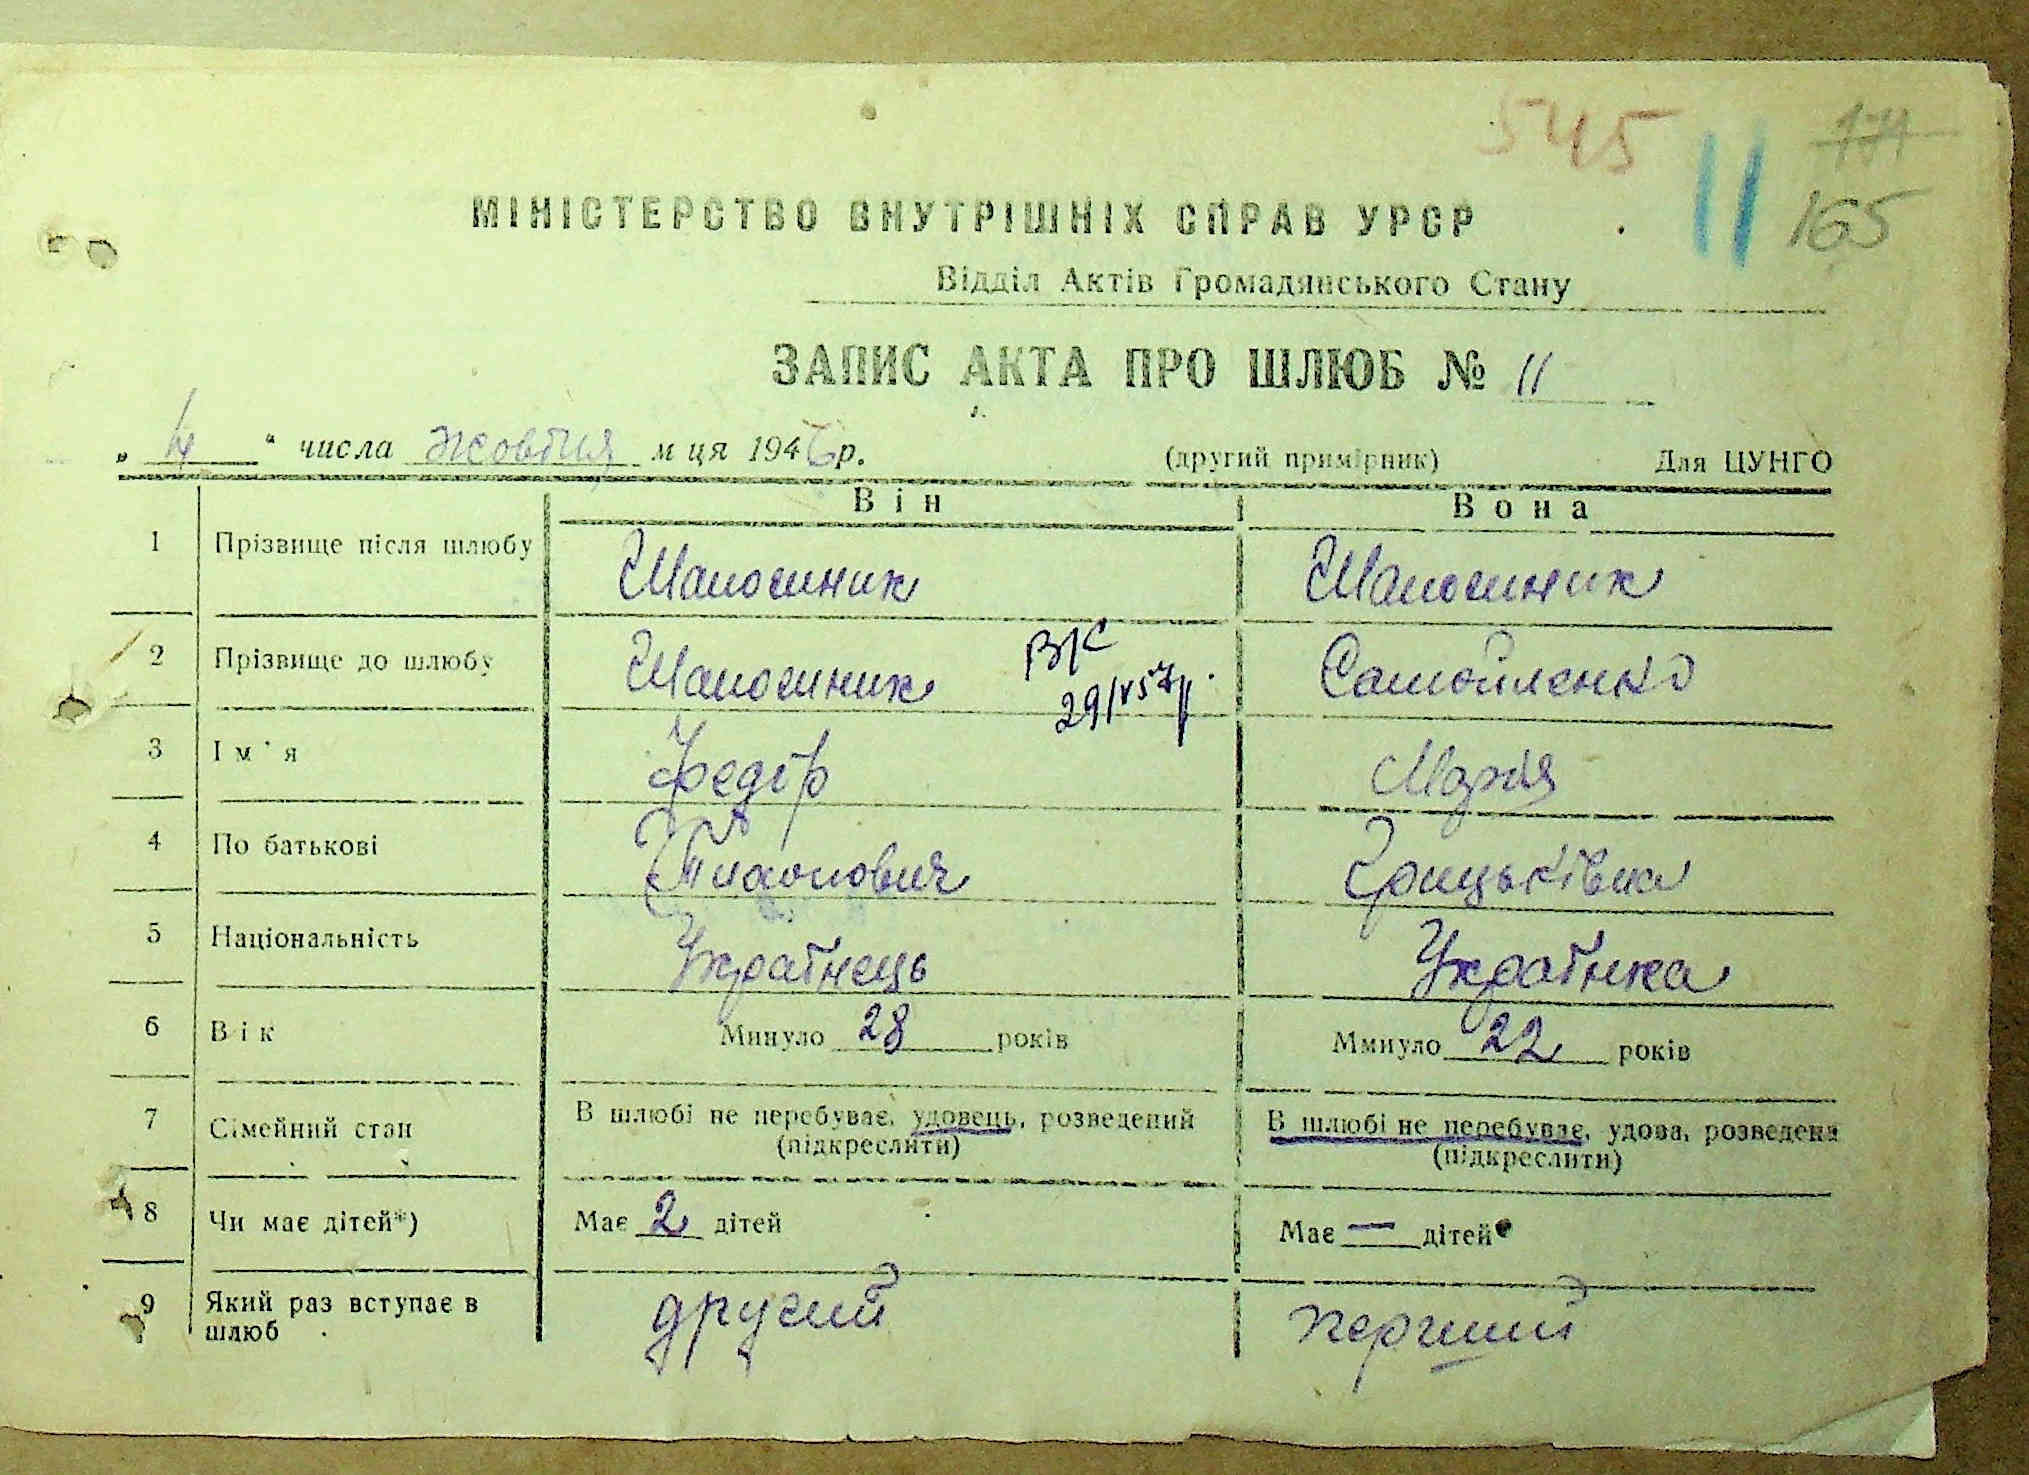 545 11 171
165
МІНІСТЕРСТВО ВНУТРІШНІХ СПРАВ УРСР
Відділ Актів Громадянського Стану
ЗАПИС АКТА ПРО ШЛЮБ № 11
„ 4 “ числа жовтня м ця 1946 р. (другий примірник) Для ЦУНГО
Він Вона
1 Прізвище після шлюбу Шапошник Шапошник
2 Прізвище до шлюбу Шапошник Самойленко
В/С
29/V57р.
3 Ім'я Федір Марія
4 По батькові Грицьківна
5 Національність Українець Українка
6 Вік Минуло 28 років Ммнуло 22 років
7 Сімейний стан В шлюбі не перебуває, удовець, розведений В шлюбі не перебуває, удова, розведена
(підкреслити) (підкреслити)
8 Чи має дітей*) Має 2 дітей Має — дітей
9 Який раз вступає в шлюб другий перший